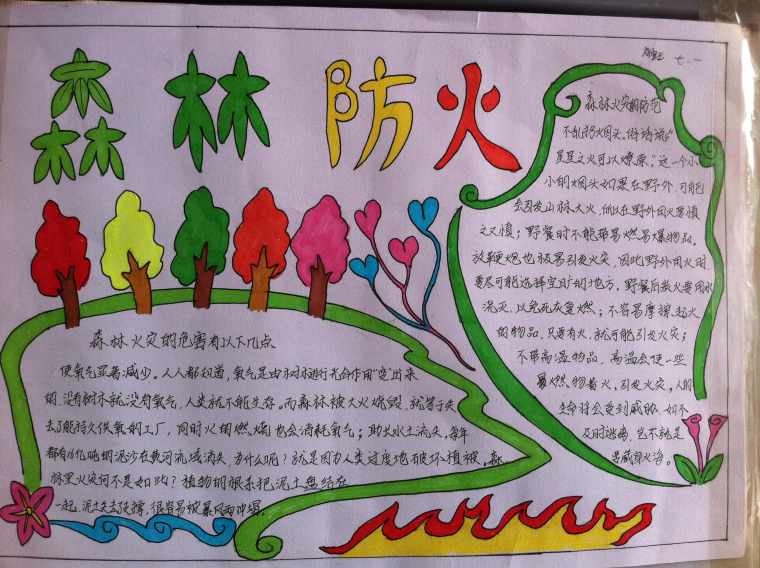 森林防火
七.一
森林火灾的防范
不乱扔烟头。俗话说:"
星星之火可以燎原。"这一个小
小的烟头如果在野外,可能
会引发山林大火,所以在野外用火要慎
之又慎;野餐时不能带易燃易爆物品。
放鞭炮也极易引发火灾,因此野外用火时
要尽可能选择空旷的地方,野餐后熄火要用水
浇灭,以免死灰复燃;不容易摩擦起火
的物品,只要有火,就可能引发火灾;
不带高温物品,高温会使一些
易燃物着火,引发火灾。人的
生命将会受到威胁,如不
及时逃离,岂不就是
葬身火海。
森林火灾的危害有以下几点
使氧气显著减少。人人都知道,氧气是由树木进行光合作用"变"出来
的,没有树木就没有氧气,人类就不能生存。而森林被大火烧毁,就等于失
去了能持久供氧的工厂,同时火的燃烧也会消耗氧气;助长水土流失,每年
都有16亿吨的泥沙在黄河流域消失,为什么呢?就是因为人类过度地破坏植被。森
林里火灾何不是如此?植物的根系把泥土盘结在
一起,泥土失去支撑,很容易被暴风雨冲塌。